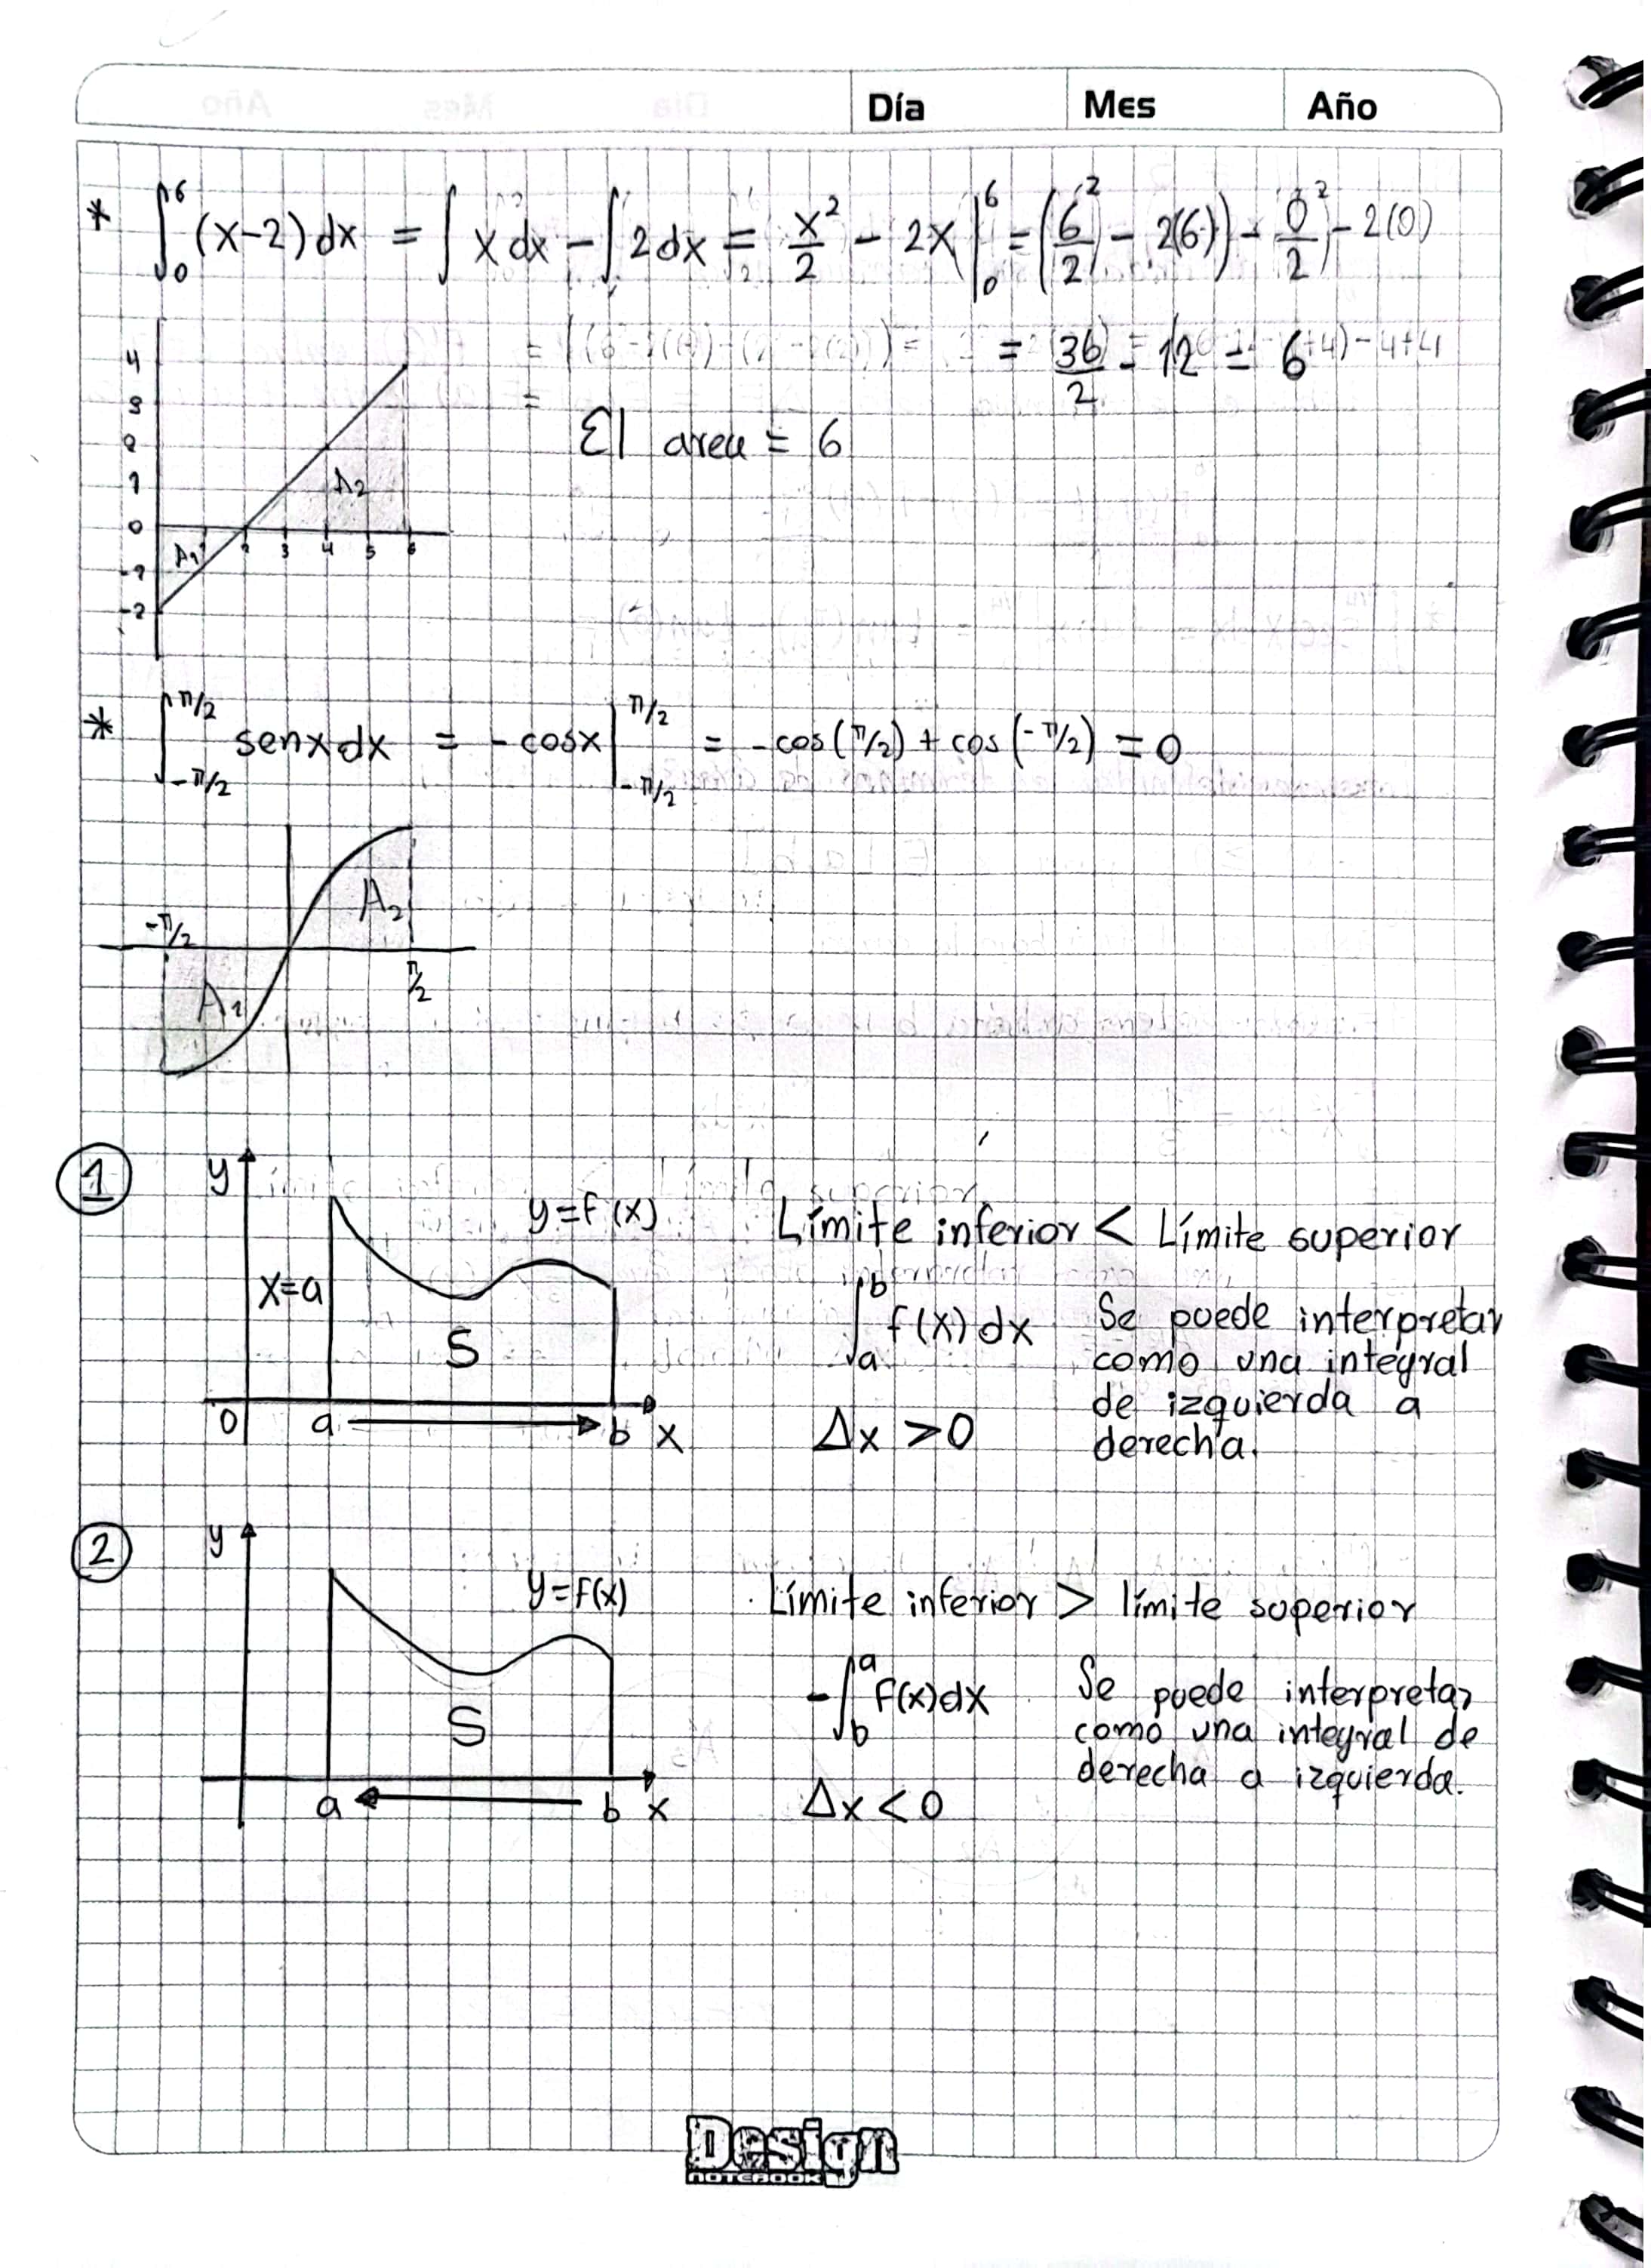 Día Mes Año
* ∫₀⁶ (x-2) dx = ∫ x dx - ∫ 2 dx = x²/2 - 2x |₀⁶ = (6²/2 - 2(6)) - 0²/2 - 2(0)
= 36/2 - 12 = 6
El area = 6
4
3
2
1
0
-1
-2
A₁
A₂
2 3 4 5 6
* ∫_{-π/2}^{π/2} senx dx = -cosx |_{-π/2}^{π/2} = -cos(π/2) + cos(-π/2) = 0
-π/2
A₂
A₁
π/2
1
y
y=f(x)
x=a
S
0 a b x
Límite inferior < Límite superior
∫ₐᵇ f(x) dx
Δx > 0
Se puede interpretar
como una integral
de izquierda a
derecha.
2
y
y=f(x)
S
a b x
Límite inferior > límite superior
-∫_b^a f(x)dx
Δx < 0
Se puede interpretar
como una integral de
derecha a izquierda.
Design
NOTEBOOK